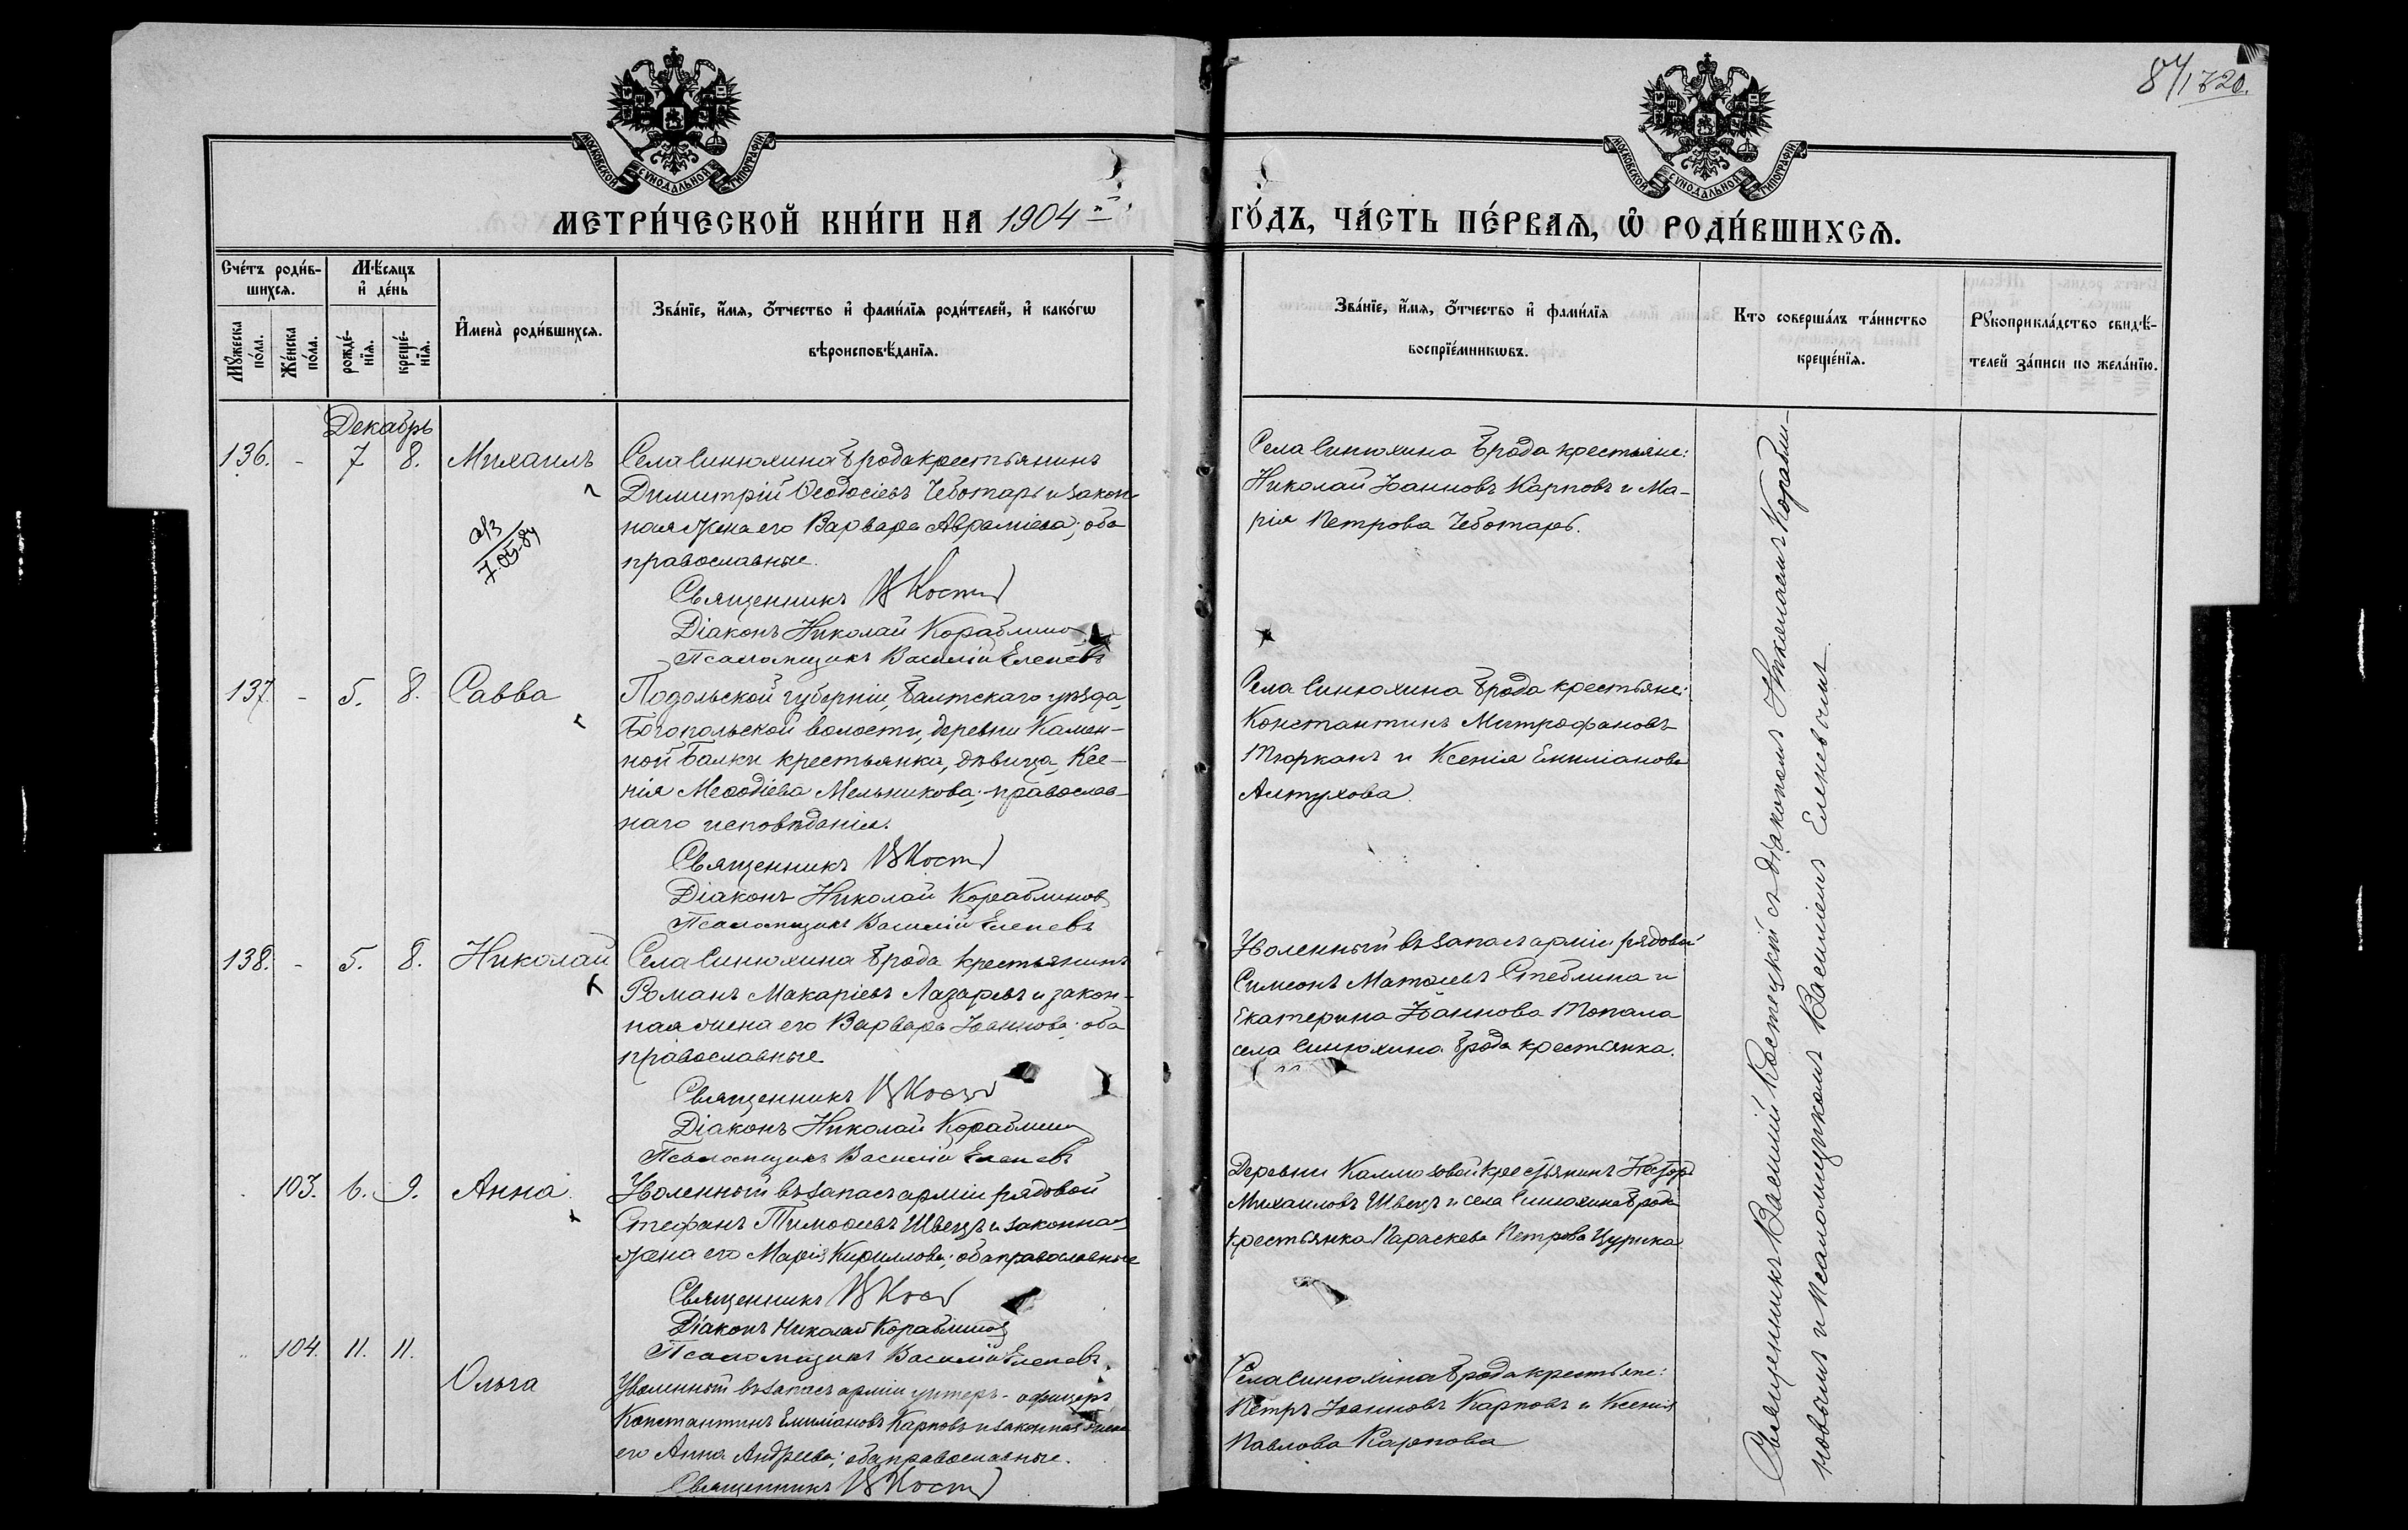 84/1820.
МОСКОВСКОЙ СѴНОДАЛЬНОЙ ТИПОГРАФІИ
МОСКОВСКОЙ СѴНОДАЛЬНОЙ ТИПОГРАФІИ
МЕТРИ́ЧЕСКОЙ КНИ́ГИ НА 1904 й
ГО́ДЪ, ЧА́СТЬ ПЕ́РВАѦ, Ѽ РОДИ́ВШИХСѦ.
Сче́тъ роди́в-
шихсѧ.
Мѣ́сѧцъ
и҆ де́нь
Мꙋ́жеска по́ла.
Же́нска по́ла.
рожде́-
нїѧ.
креще́-
нїѧ.
И҆мена̀ роди́вшихсѧ.
Зва́нїе, и҆́мѧ, ѻ҆́тчество и҆ фами́лїѧ роди́телей, и҆ како́гѡ
вѣроисповѣ́данїѧ.
Зва́нїе, и҆́мѧ, ѻ҆́тчество и҆ фами́лїѧ
воспрїе́мникѡвъ.
Кто соверша́лъ та́инство
креще́нїѧ.
Рꙋкоприкла́дство свидѣ́-
телей за́писи по жела́нїю.
Декабрь
136. - 7 8. Михаилъ
Села Синюхина Брода крестьянинъ
Димитрій Ѳеодосіевъ Чеботарь и закон-
ная жена его Варвара Авраміева; оба
православные.
7.05.84
Священникъ В Кост
Діаконъ Николай Кораблино
Псаломщикъ Василій Еленевъ
Села Синюхина Брода крестьяне:
Николай Іоанновъ Карповъ и Ма-
рія Петрова Чеботарь.
137. - 5. 8. Савва
Подольской губерніи, Балтскаго уѣзда,
Богопольской волости, деревни Камен-
ной Балки крестьянка, дѣвица, Ксе-
нія Меѳодіева Мельникова; православ-
наго исповѣданія.
Священникъ В Кост
Діаконъ Николай Кораблинов
Псаломщикъ Василій Еленевъ
Села Синюхина Брода крестьяне:
Константинъ Митрофановъ
Тюрканъ и Ксенія Емиліанова
Алтухова.
138. - 5. 8. Николай
Села Синюхина Брода крестьянинъ
Романъ Макаріевъ Лазаревъ и закон-
ная жена его Варвара Іоаннова; оба
православные
Священникъ В Кост
Діаконъ Николай Кораблин
Псаломщикъ Василій Еленевъ
Уволенный въ запасъ арміи рядовой
Симеонъ Матѳіевъ Стеблина и
Екатерина Іоаннова Топала
села Синюхина Брода крестьянка.
103. 6. 9. Анна
Уволенный въ запасъ арміи рядовой
Стефанъ Тимоѳеевъ Швецъ и законная
жена его Марія Кириллова; оба православные
Священникъ В Кост
Діаконъ Николай Кораблинов
Псаломщикъ Василій Еленевъ
Деревни Калмазовой крестьянинъ Несторъ
Михаиловъ Швецъ и села Синюхина Брода
крестьянка Параскева Петрова Цурика
104. 11. 11. Ольга
Уволенный въ запасъ арміи унтеръ-офицеръ
Константинъ Емиліановъ Карповъ и законная жена
его Анна Андреева; оба православные.
Священникъ В Кост
Села Синюхина Брода крестьяне:
Петръ Іоанновъ Карповъ и Ксенія
Павлова Карпова
Священникъ Василій Костецкій съ діакономъ Николаемъ Корабли-
новымъ и псаломщикомъ Василіемъ Еленевымъ